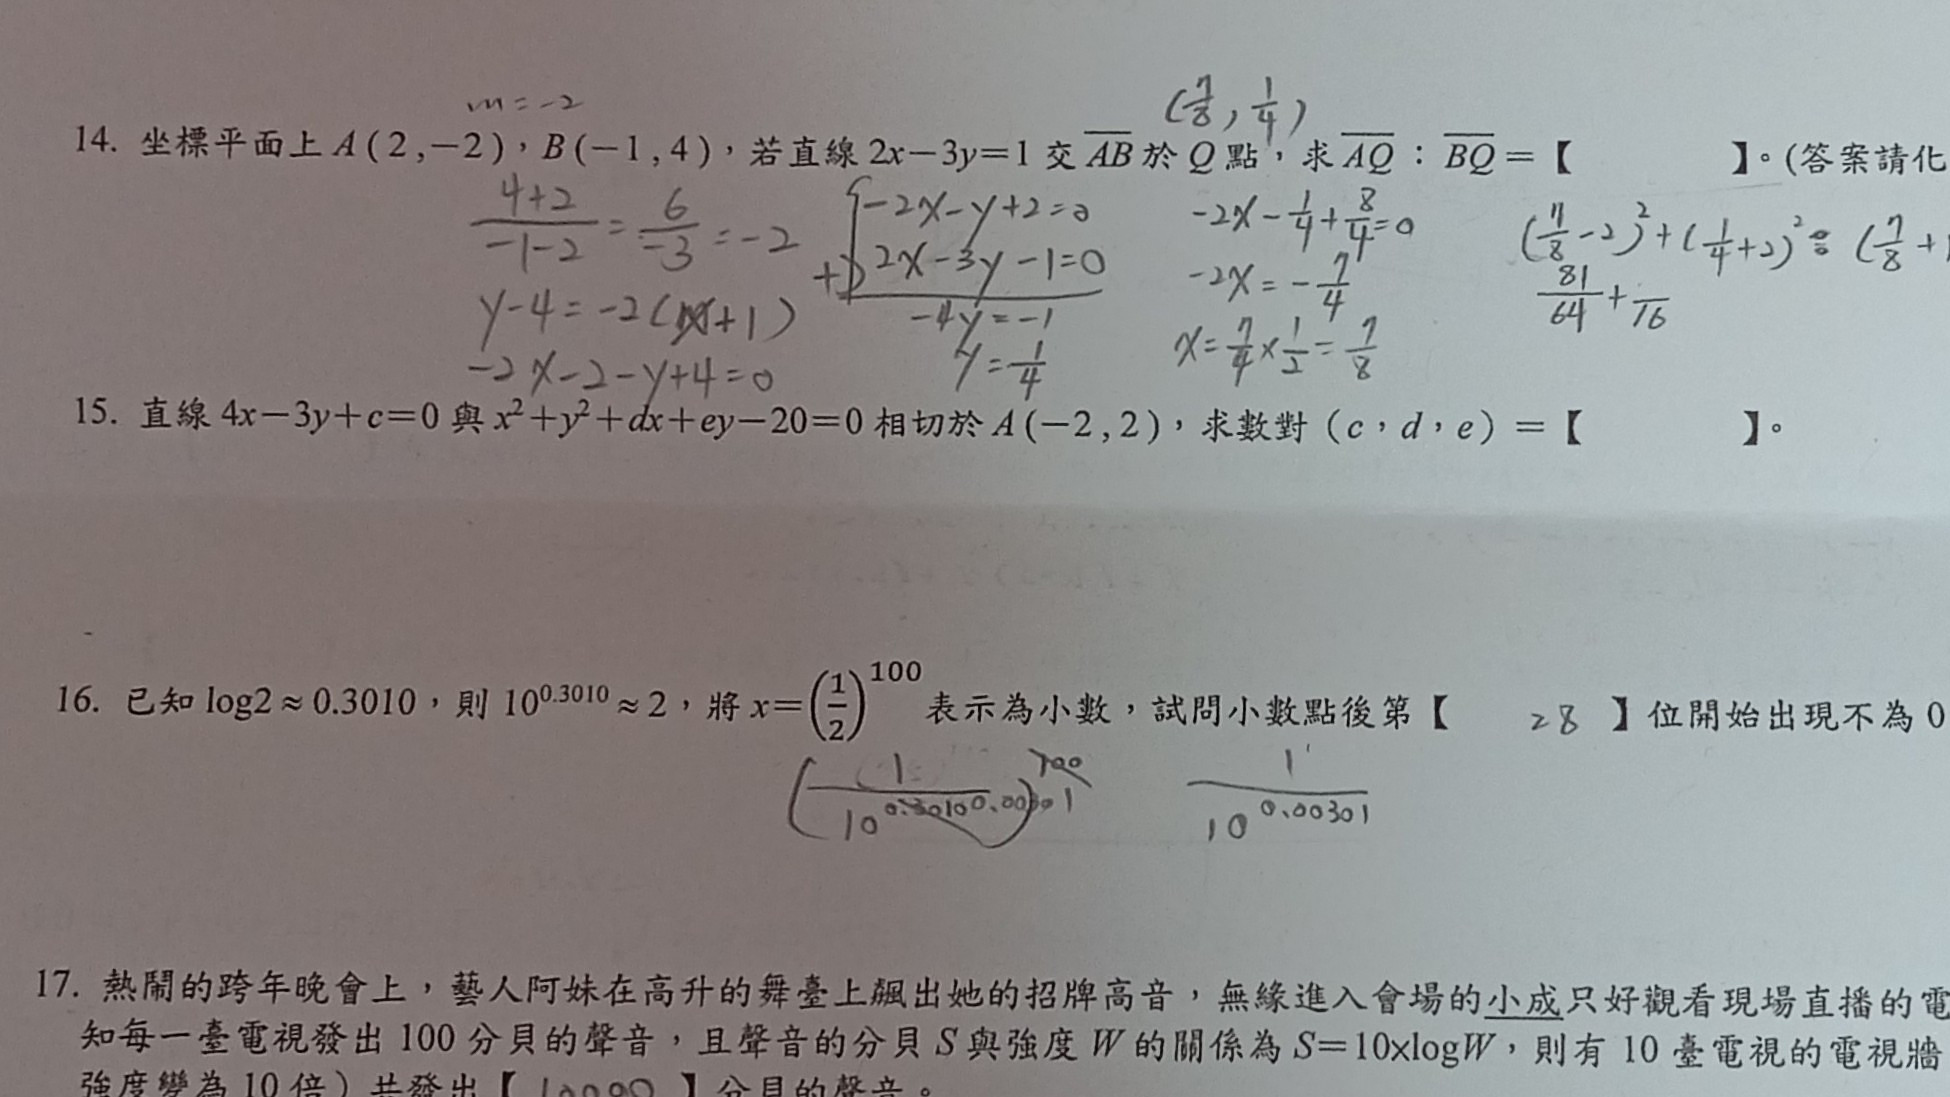 m=-2
(7/8, 1/4)
14. 坐標平面上 A(2,−2),B(−1,4),若直線 2x−3y=1 交 AB 於 Q 點,求 AQ:BQ=【 】。(答案請化
4+2/-1-2 = 6/-3 = -2
y-4=-2(x+1)
-2x-2-y+4=0
-2x-y+2=0
+) 2x-3y-1=0
-4y=-1
y=1/4
-2x-1/4+8/4=0
-2x=-7/4
x=7/4×1/2=7/8
(7/8-2)²+(1/4+2)²:(7/8+
81/64+ /16
15. 直線 4x−3y+c=0 與 x²+y²+dx+ey−20=0 相切於 A(−2,2),求數對(c,d,e)=【 】。
16. 已知 log2≈0.3010,則 10^0.3010≈2,將 x=(1/2)^100 表示為小數,試問小數點後第【 28 】位開始出現不為 0
1/10^0.00301
17. 熱鬧的跨年晚會上,藝人阿妹在高升的舞臺上飆出她的招牌高音,無緣進入會場的小成只好觀看現場直播的電
知每一臺電視發出 100 分貝的聲音,且聲音的分貝 S 與強度 W 的關係為 S=10×logW,則有 10 臺電視的電視牆
強度變為 10 倍)共發出【 】分貝的聲音。